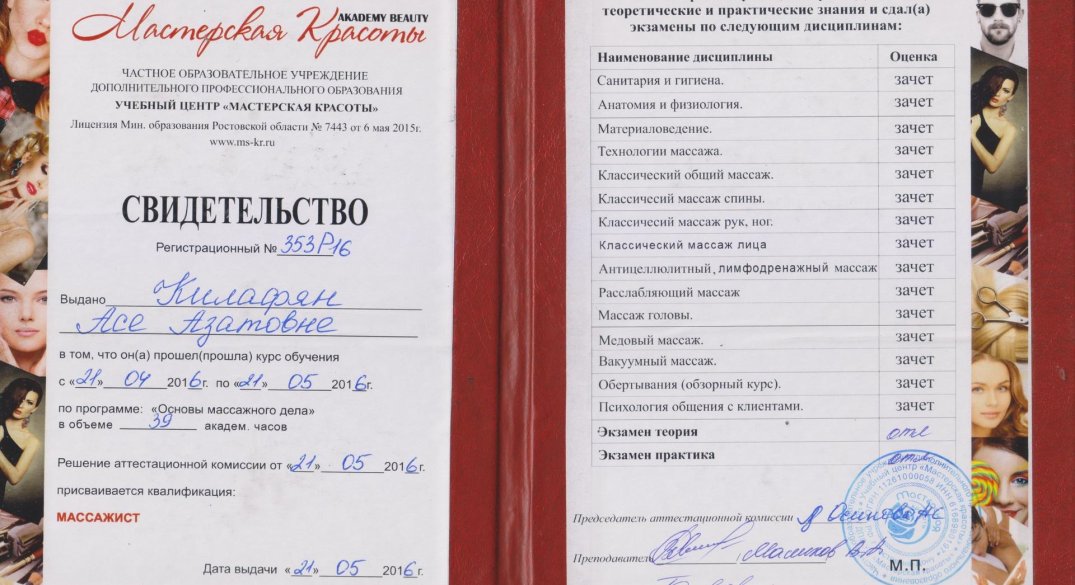 Мастерская Красоты
ACADEMY BEAUTY
ЧАСТНОЕ ОБРАЗОВАТЕЛЬНОЕ УЧРЕЖДЕНИЕ
ДОПОЛНИТЕЛЬНОГО ПРОФЕССИОНАЛЬНОГО ОБРАЗОВАНИЯ
УЧЕБНЫЙ ЦЕНТР «МАСТЕРСКАЯ КРАСОТЫ»
Лицензия Мин. образования Ростовской области № 7443 от 6 мая 2015г.
www.ms-kr.ru
СВИДЕТЕЛЬСТВО
Регистрационный № 353Р16
Выдано Килафян
Асе Азатовне
в том, что он(а) прошел(прошла) курс обучения
с «21» 04 2016г. по «21» 05 2016г.
по программе: «Основы массажного дела»
в объеме 39 академ. часов
Решение аттестационной комиссии от «21» 05 2016г.
присваивается квалификация:
МАССАЖИСТ
Дата выдачи «21» 05 2016г.
теоретические и практические знания и сдал(а)
экзамены по следующим дисциплинам:
Наименование дисциплины Оценка
Санитария и гигиена. зачет
Анатомия и физиология. зачет
Материаловедение. зачет
Технологии массажа. зачет
Классический общий массаж. зачет
Классичесий массаж спины. зачет
Классичесий массаж рук, ног. зачет
Классический массаж лица зачет
Антицеллюлитный, лимфодренажный массаж зачет
Расслабляющий массаж зачет
Массаж головы. зачет
Медовый массаж. зачет
Вакуумный массаж. зачет
Обертывания (обзорный курс). зачет
Психология общения с клиентами. зачет
Экзамен теория отл
Экзамен практика отл
Председатель аттестационной комиссии
Преподаватель
М.П.